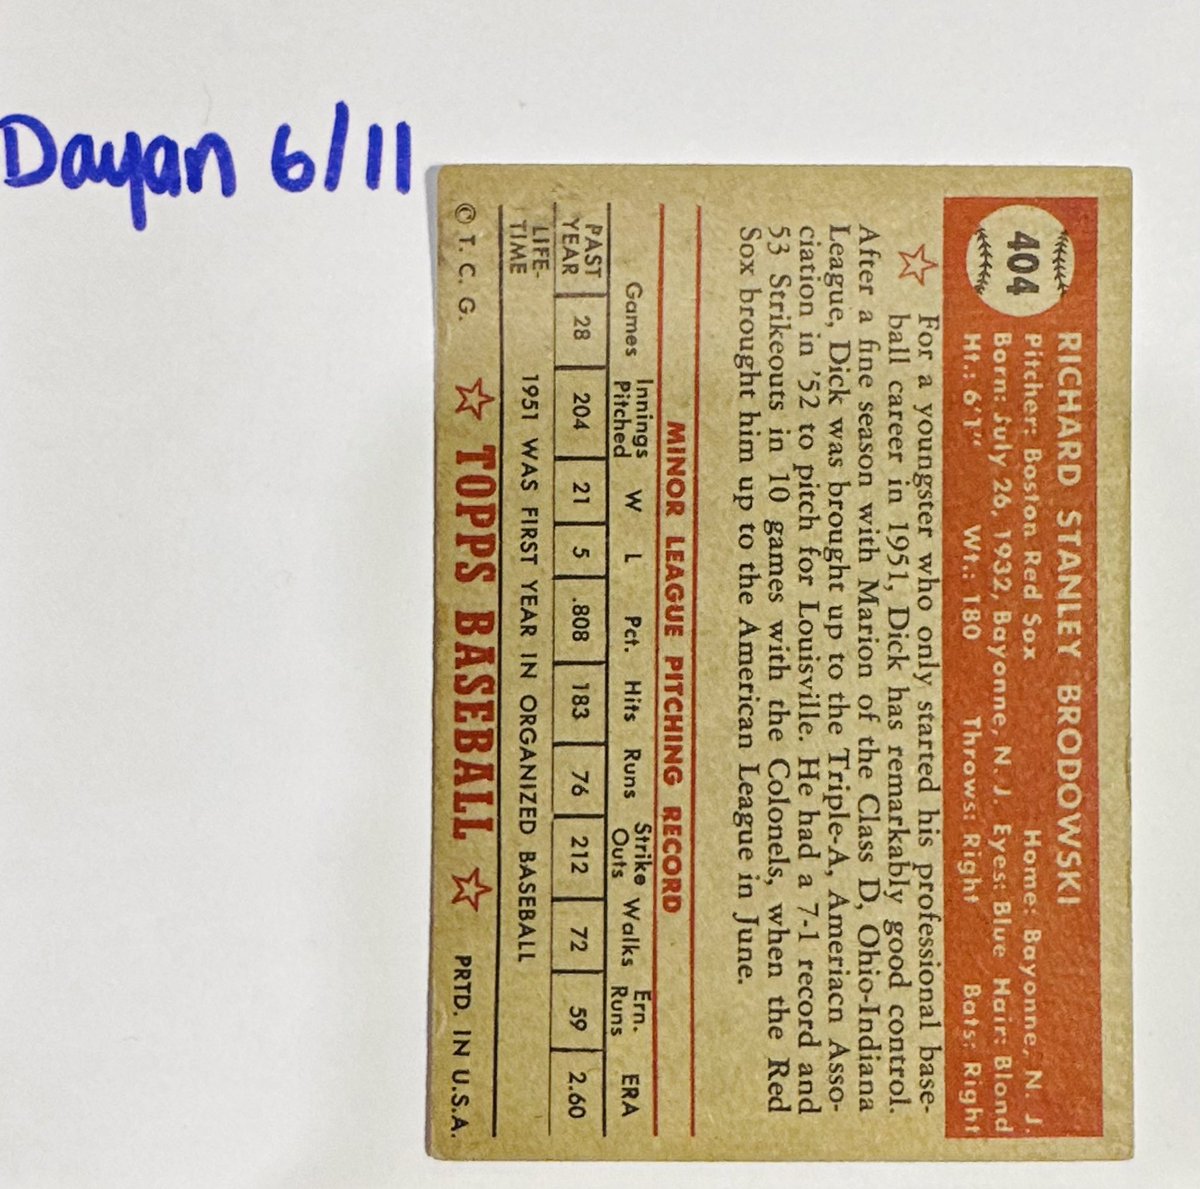 Dayan 6/11
404
RICHARD STANLEY BRODOWSKI
Pitcher: Boston Red Sox Home: Bayonne, N. J.
Born: July 26, 1932, Bayonne, N. J. Eyes: Blue Hair: Blond
Ht.: 6'1" Wt.: 180 Throws: Right Bats: Right
For a youngster who only started his professional base-
ball career in 1951, Dick has remarkably good control.
After a fine season with Marion of the Class D, Ohio-Indiana
League, Dick was brought up to the Triple-A, Ameriacn Asso-
ciation in '52 to pitch for Louisville. He had a 7-1 record and
53 Strikeouts in 10 games with the Colonels, when the Red
Sox brought him up to the American League in June.
MINOR LEAGUE PITCHING RECORD
Games Innings Pitched W L Pct. Hits Runs Strike Outs Walks Ern. Runs ERA
PAST YEAR 28 204 21 5 .808 183 76 212 72 59 2.60
LIFE-TIME 1951 WAS FIRST YEAR IN ORGANIZED BASEBALL
© T. C. G. TOPPS BASEBALL PRTD. IN U.S.A.